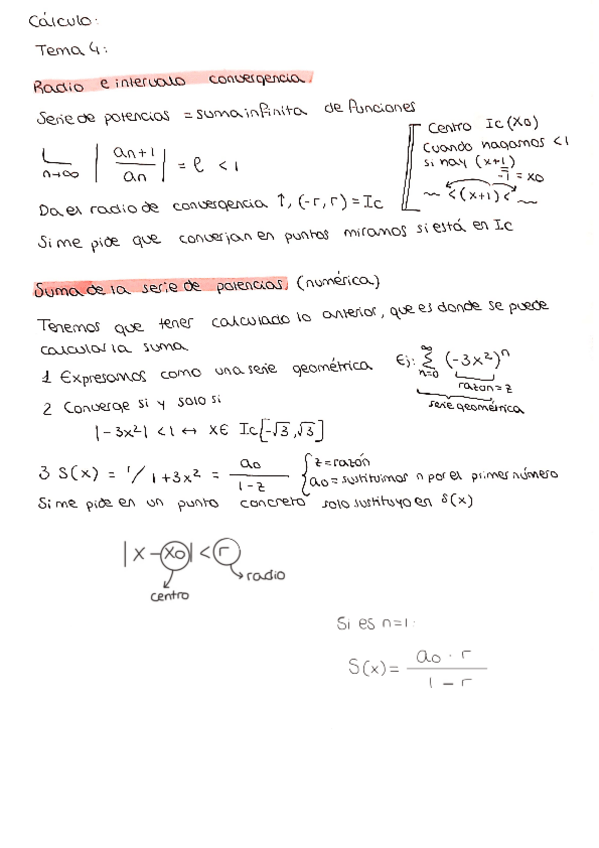 Cálculo:
Tema 4:
Radio e intervalo convergencia.
Serie de potencias = suma infinita de funciones
Lim n→∞ | an+1 / an | = l < 1
Centro Ic (x0)
Cuando hagamos < 1
si hay (x+1)
-1 = x0
~ < (x+1) < ~
Da el radio de convergencia ↑, (-r, r) = Ic
Si me pide que converjan en puntos miramos si está en Ic
Suma de la serie de potencias. (numérica)
Tenemos que tener calculado lo anterior, que es donde se puede
calcular la suma
1 Expresamos como una serie geométrica
Ej: ∞ Σ n=0 (-3x²)ⁿ
razon = z
serie geométrica
2 Converge si y solo si
|-3x²| < 1 ↔ x ∈ Ic [-√3, √3]
3 S(x) = 1/1+3x² = a0 / 1-z
z = razón
a0 = sustituimos n por el primer número
Si me pide en un punto concreto solo sustituyo en S(x)
|x - x0| < r
radio
centro
Si es n=1:
S(x) = a0 · r / 1 - r